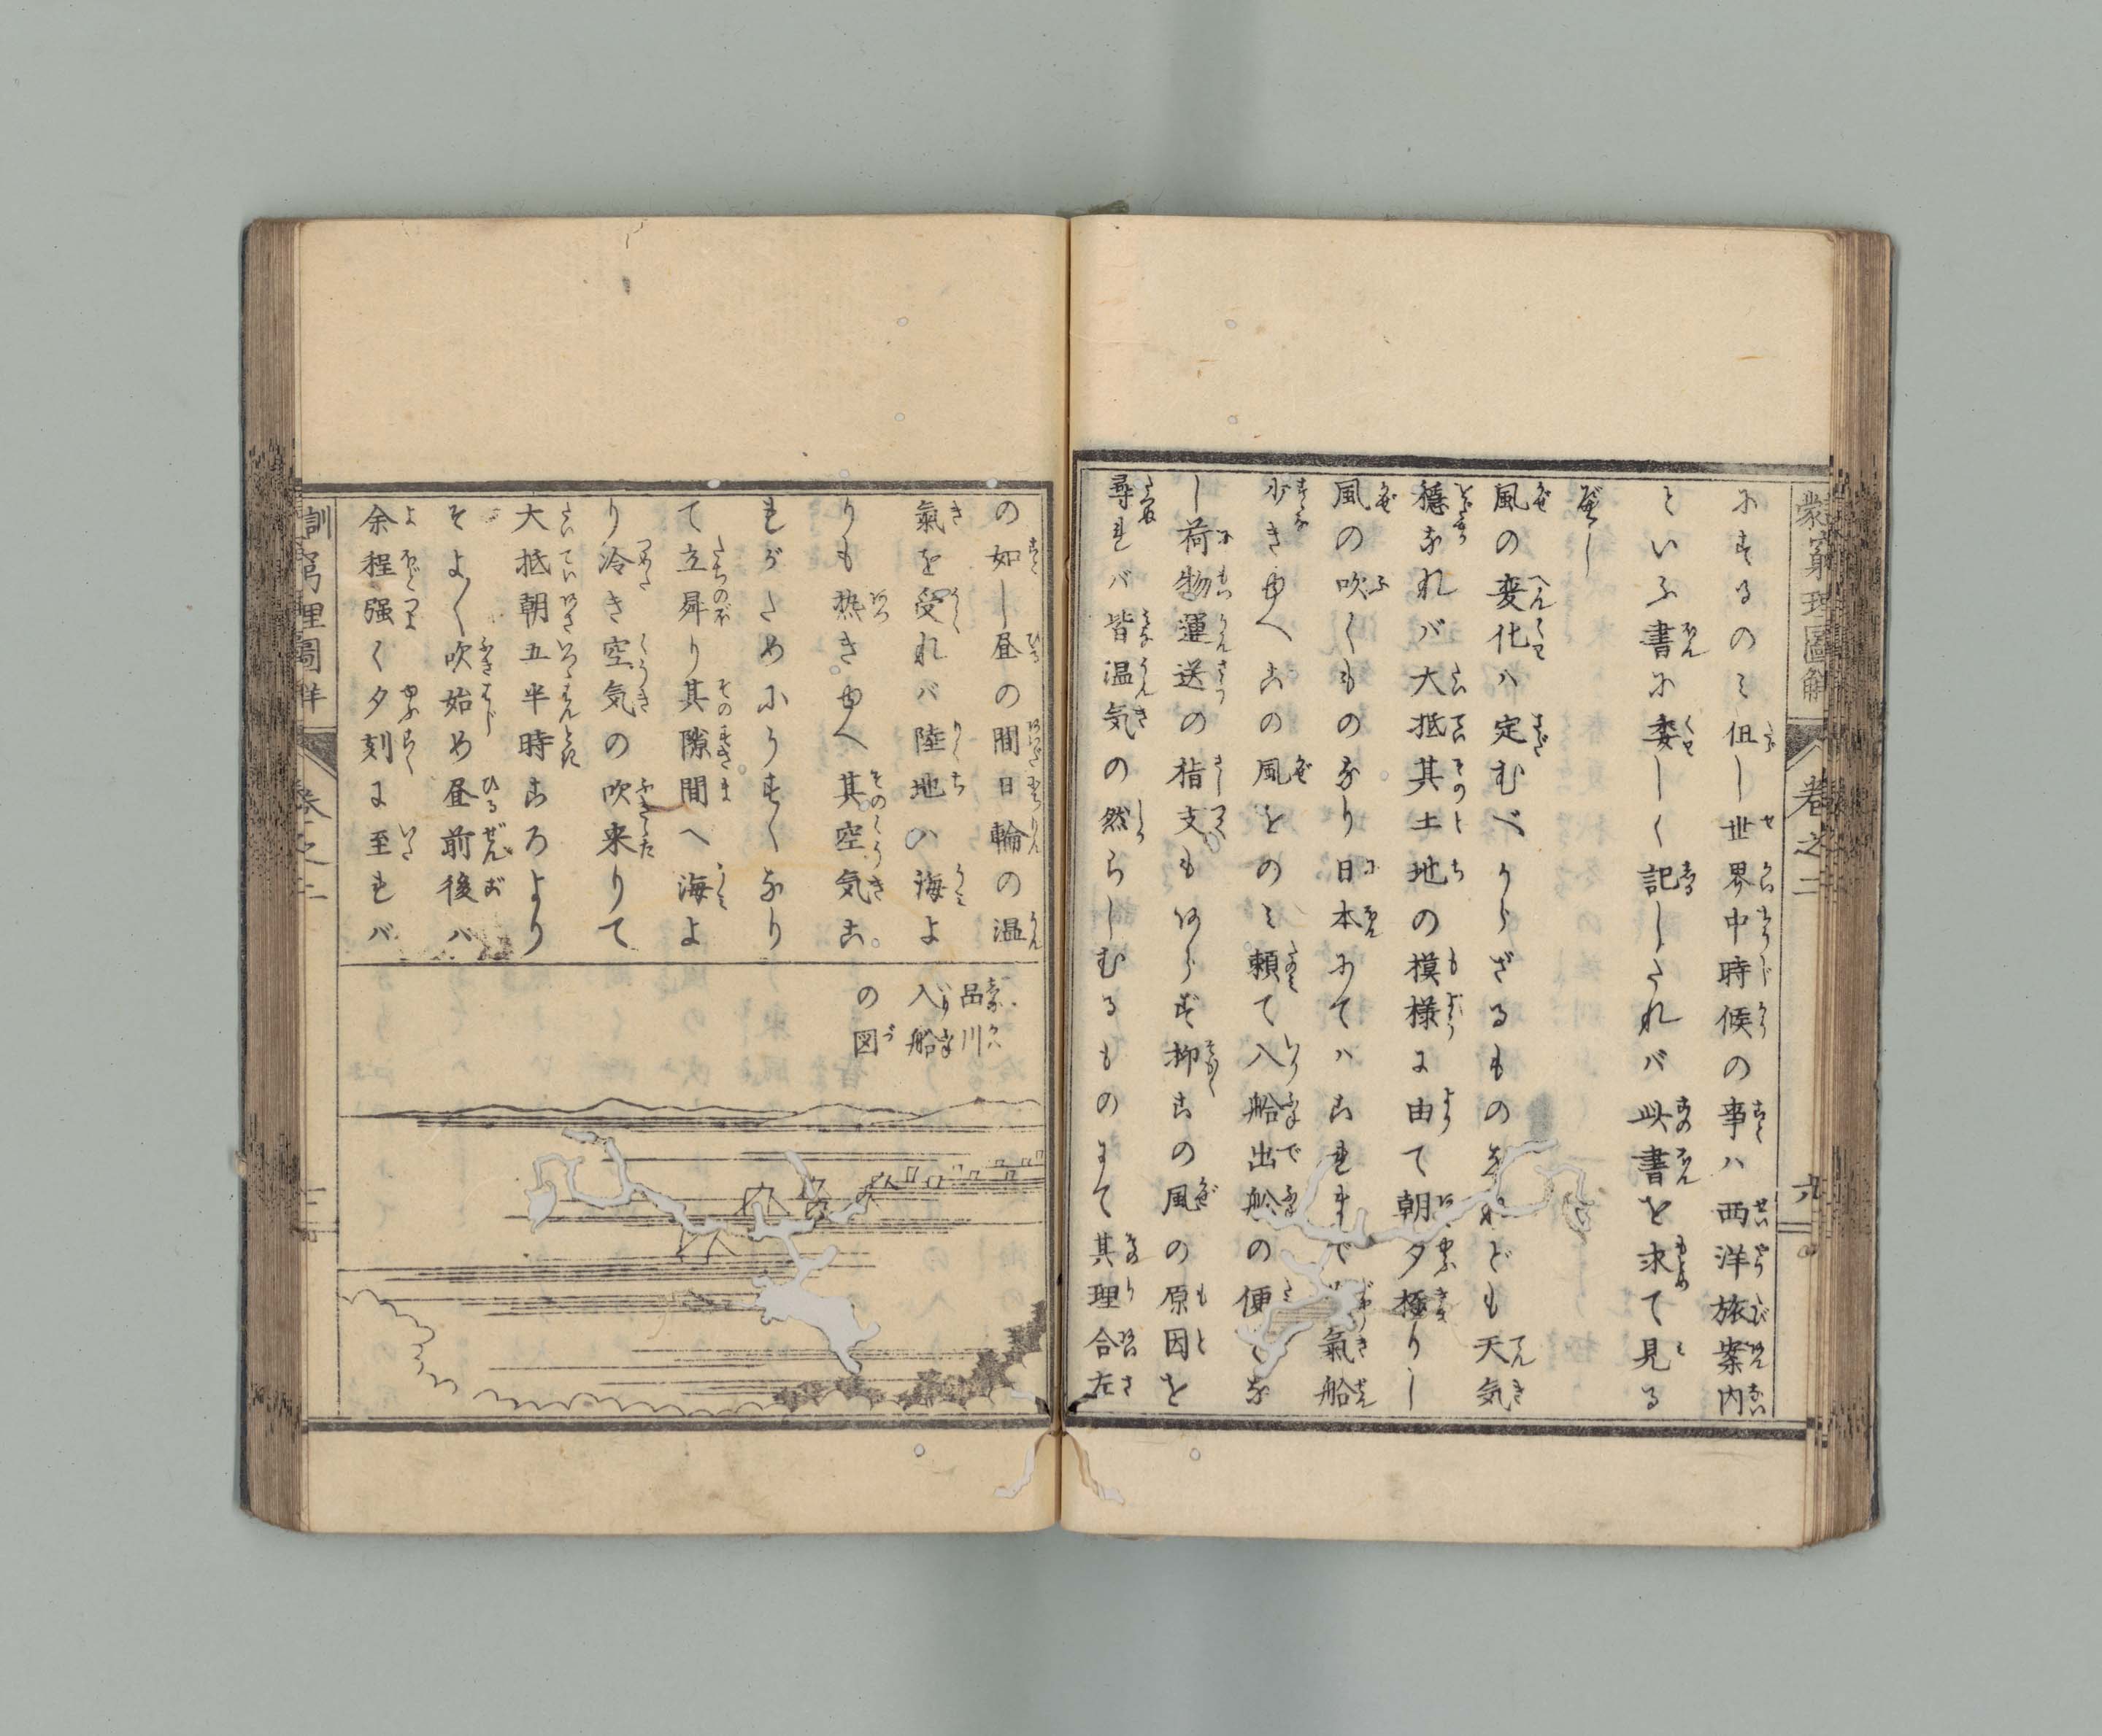 蒙窮理圖解 卷之二 九
にするのミ但し世界中時候の事ハ西洋旅案内
といふ書に委しく記したれバ此書を求て見る
べし
風の変化ハ定むべからざるものなれども天気
穏なれバ大抵其土地の模様に由て朝夕極りし
風の吹くものなり日本にてハこれまで氣船
少きゆへこの風をのミ頼て入船出舩の便とな
し荷物運送の指支もあらず抑この風の原因を
尋れバ皆温気の然らしむるものにて其理合左
の如し昼の間日輪の温
氣を受れバ陸地ハ海よ
りも熱きゆへ其空気こ
れがためにうすくなり
て立昇り其隙間へ海よ
り冷き空気の吹来りて
大抵朝五半時ころより
そよ〱吹始め昼前後ハ
余程强く夕刻に至れバ
品川
入船
の図
訓窮理圖解 卷之二